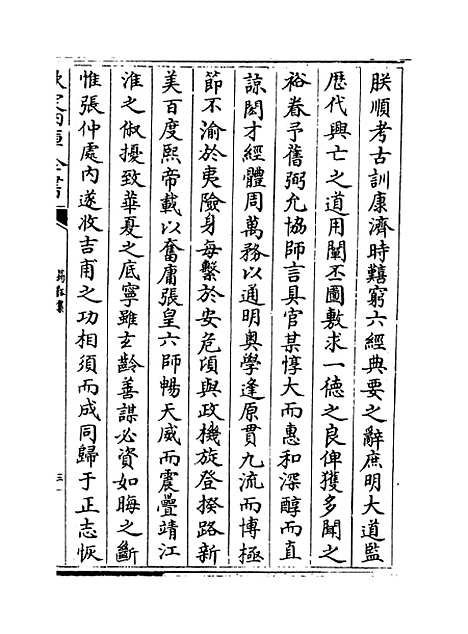 朕順考古訓康濟時囏窮六經典要之辭庶明大道監
歴代興亡之道用闡丕圖敷求一德之良俾獲多聞之
裕眷予舊弼允協師言具官某惇大而惠和深醇而直
諒閎才經體周萬務以通明奥學逢原貫九流而博極
節不渝於夷險身毎繫於安危頃與政機旋登揆路新
美百度熙帝載以奮庸張皇六師暢天威而震疊靖江
淮之俶擾致華夏之底寧雖玄齡善謀必資如晦之斷
惟張仲處内遂收吉甫之功相須而成同歸于正志恢